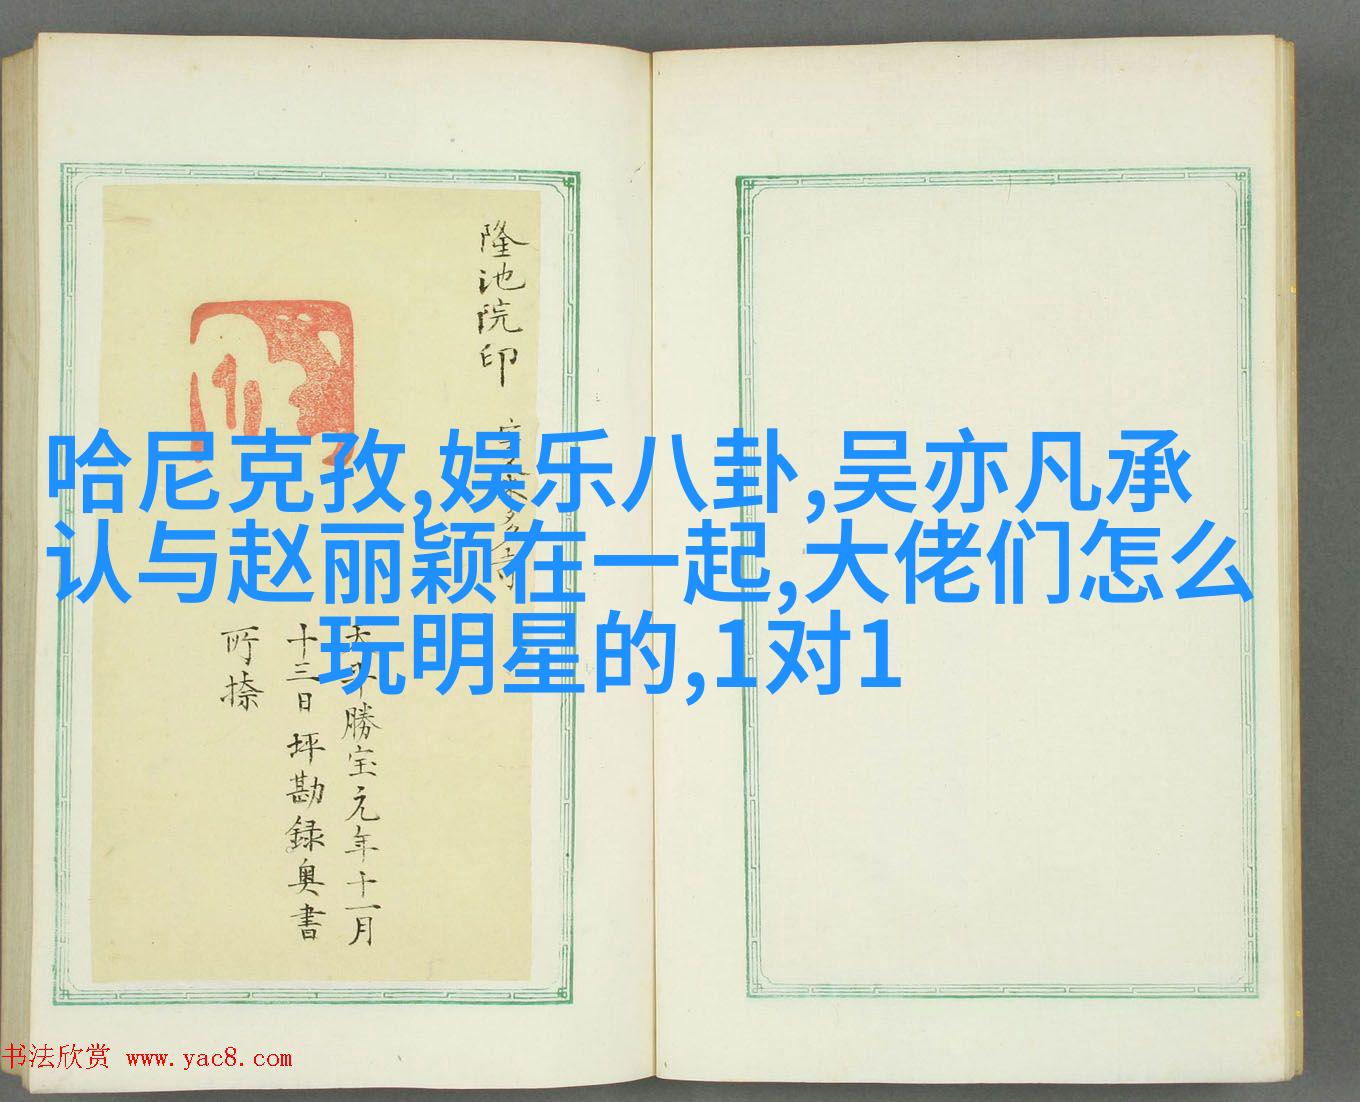 哈尼克孜,娱乐八卦,吴亦凡承
认与赵丽颖在一起,大佬们怎么
玩明星的,1对1
隆池院印
勝宝元年十一月
十三日坪勘録奥書
所捺
书法欣赏 www.yac8.com